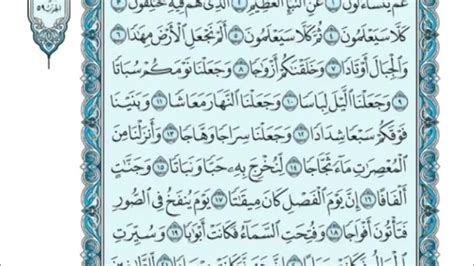 عَمَّ يَتَسَآءَلُونَ ١ عَنِ ٱلنَّبَإِ ٱلْعَظِيمِ ٢ ٱلَّذِى هُمْ فِيهِ مُخْتَلِفُونَ ٣
كَلَّا سَيَعْلَمُونَ ٤ ثُمَّ كَلَّا سَيَعْلَمُونَ ٥ أَلَمْ نَجْعَلِ ٱلْأَرْضَ مِهَٰدًا ٦
وَٱلْجِبَالَ أَوْتَادًا ٧ وَخَلَقْنَٰكُمْ أَزْوَٰجًا ٨ وَجَعَلْنَا نَوْمَكُمْ سُبَاتًا
٩ وَجَعَلْنَا ٱلَّيْلَ لِبَاسًا ١٠ وَجَعَلْنَا ٱلنَّهَارَ مَعَاشًا ١١ وَبَنَيْنَا
فَوْقَكُمْ سَبْعًا شِدَادًا ١٢ وَجَعَلْنَا سِرَاجًا وَهَّاجًا ١٣ وَأَنزَلْنَا مِنَ
ٱلْمُعْصِرَٰتِ مَآءً ثَجَّاجًا ١٤ لِّنُخْرِجَ بِهِۦ حَبًّا وَنَبَاتًا ١٥ وَجَنَّٰتٍ
أَلْفَافًا ١٦ إِنَّ يَوْمَ ٱلْفَصْلِ كَانَ مِيقَٰتًا ١٧ يَوْمَ يُنفَخُ فِى ٱلصُّورِ
فَتَأْتُونَ أَفْوَاجًا ١٨ وَفُتِحَتِ ٱلسَّمَآءُ فَكَانَتْ أَبْوَٰبًا ١٩ وَسُيِّرَتِ